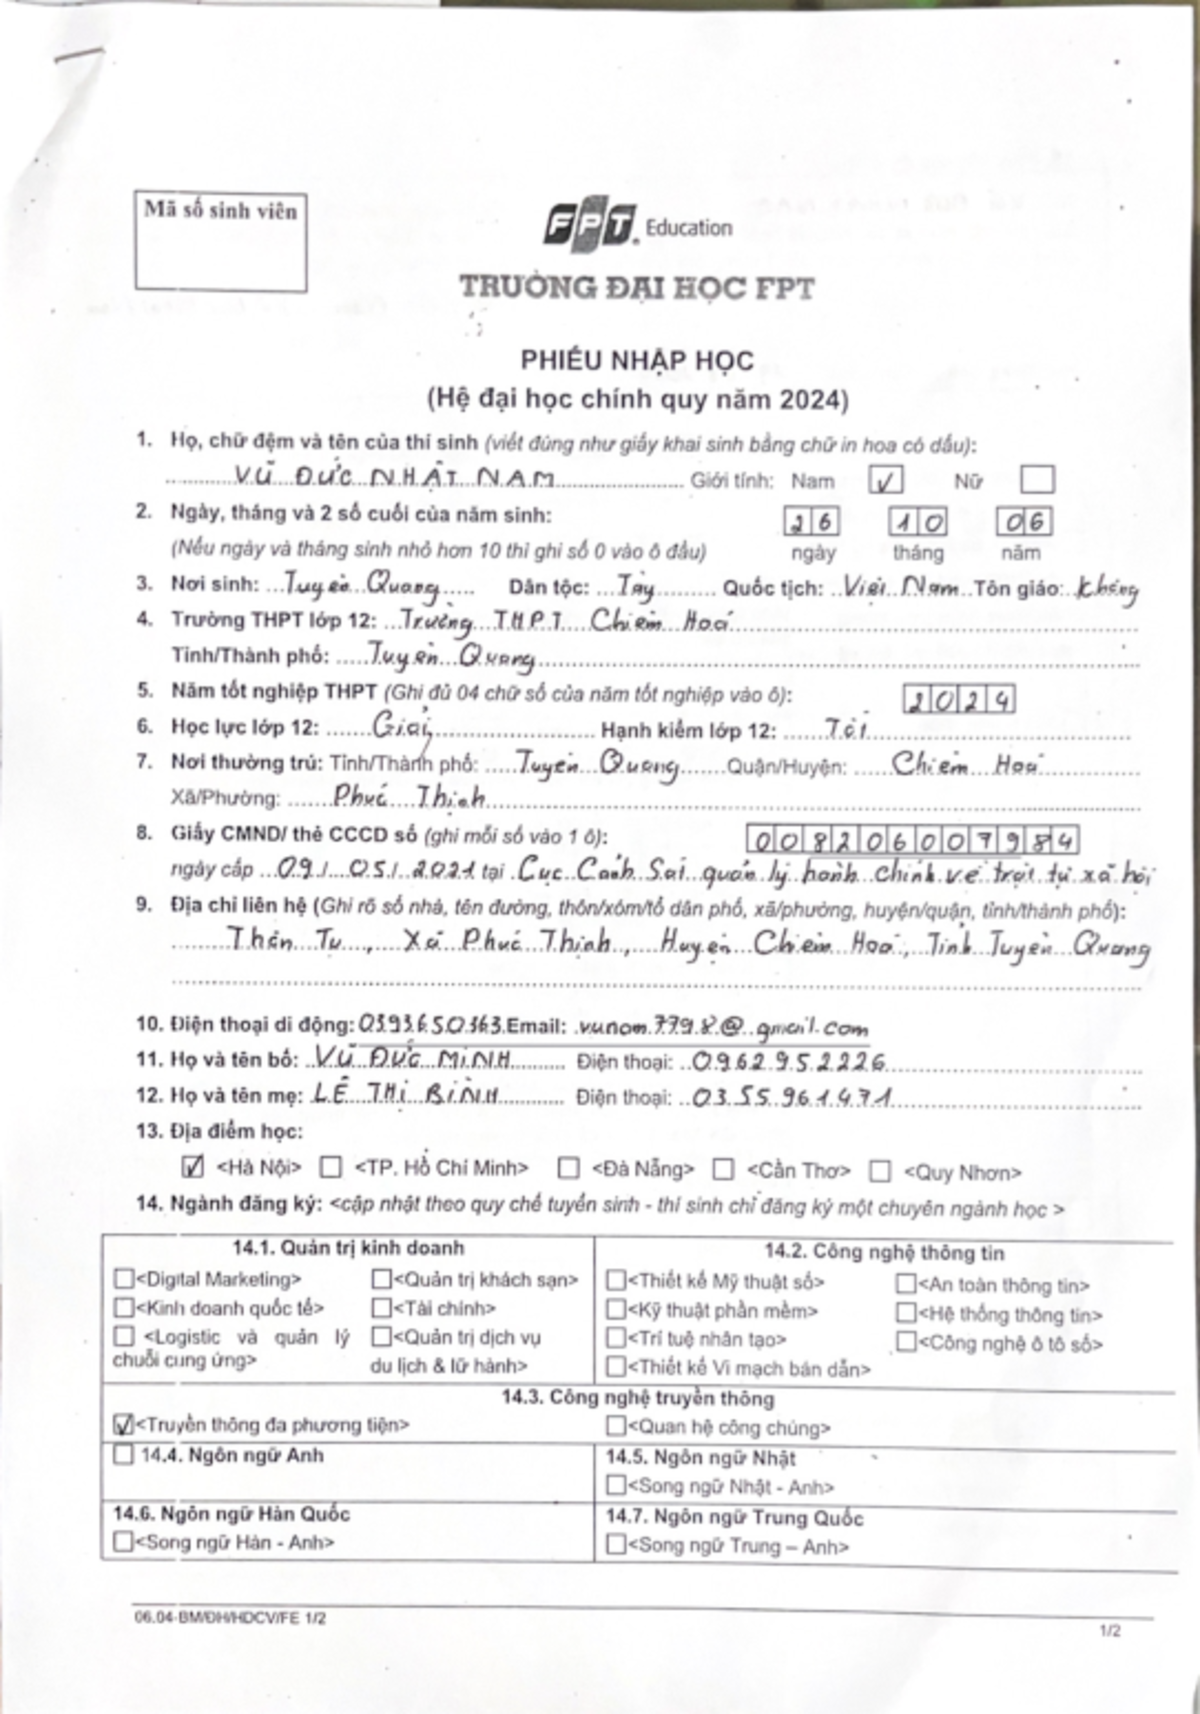 Mã số sinh viên
FPT Education
TRƯỜNG ĐẠI HỌC FPT
PHIẾU NHẬP HỌC
(Hệ đại học chính quy năm 2024)
1. Họ, chữ đệm và tên của thí sinh (viết đúng như giấy khai sinh bằng chữ in hoa có dấu):
VŨ ĐỨC NHẬT NAM Giới tính: Nam ✓ Nữ
2. Ngày, tháng và 2 số cuối của năm sinh: 26 10 06
(Nếu ngày và tháng sinh nhỏ hơn 10 thì ghi số 0 vào ô đầu) ngày tháng năm
3. Nơi sinh: Tuyên Quang Dân tộc: Tày Quốc tịch: Việt Nam Tôn giáo: Không
4. Trường THPT lớp 12: Trường THPT Chiêm Hoá
Tỉnh/Thành phố: Tuyên Quang
5. Năm tốt nghiệp THPT (Ghi đủ 04 chữ số của năm tốt nghiệp vào ô): 2024
6. Học lực lớp 12: Giỏi Hạnh kiểm lớp 12: Tốt
7. Nơi thường trú: Tỉnh/Thành phố: Tuyên Quang Quận/Huyện: Chiêm Hoá
Xã/Phường: Phúc Thịnh
8. Giấy CMND/ thẻ CCCD số (ghi mỗi số vào 1 ô): 008206007984
ngày cấp 09/05/2021 tại Cục Cảnh Sát quản lý hành chính về trật tự xã hội
9. Địa chỉ liên hệ (Ghi rõ số nhà, tên đường, thôn/xóm/tổ dân phố, xã/phường, huyện/quận, tỉnh/thành phố):
Thôn Tụ, Xã Phúc Thịnh, Huyện Chiêm Hoá, Tỉnh Tuyên Quang
10. Điện thoại di động: 0393650363 Email: vunam7798@gmail.com
11. Họ và tên bố: VŨ ĐỨC MINH Điện thoại: 0962952226
12. Họ và tên mẹ: LÊ THỊ BÌNH Điện thoại: 0355961471
13. Địa điểm học:
✓ <Hà Nội> <TP. Hồ Chí Minh> <Đà Nẵng> <Cần Thơ> <Quy Nhơn>
14. Ngành đăng ký: <cập nhật theo quy chế tuyển sinh - thí sinh chỉ đăng ký một chuyên ngành học >
14.1. Quản trị kinh doanh
<Digital Marketing> <Quản trị khách sạn>
<Kinh doanh quốc tế> <Tài chính>
<Logistic và quản lý <Quản trị dịch vụ
chuỗi cung ứng> du lịch & lữ hành>
14.2. Công nghệ thông tin
<Thiết kế Mỹ thuật số> <An toàn thông tin>
<Kỹ thuật phần mềm> <Hệ thống thông tin>
<Trí tuệ nhân tạo> <Công nghệ ô tô số>
<Thiết kế Vi mạch bán dẫn>
14.3. Công nghệ truyền thông
✓ <Truyền thông đa phương tiện> <Quan hệ công chúng>
14.4. Ngôn ngữ Anh
14.5. Ngôn ngữ Nhật
<Song ngữ Nhật - Anh>
14.6. Ngôn ngữ Hàn Quốc
<Song ngữ Hàn - Anh>
14.7. Ngôn ngữ Trung Quốc
<Song ngữ Trung – Anh>
06.04-BM/ĐH/HDCV/FE 1/2
1/2